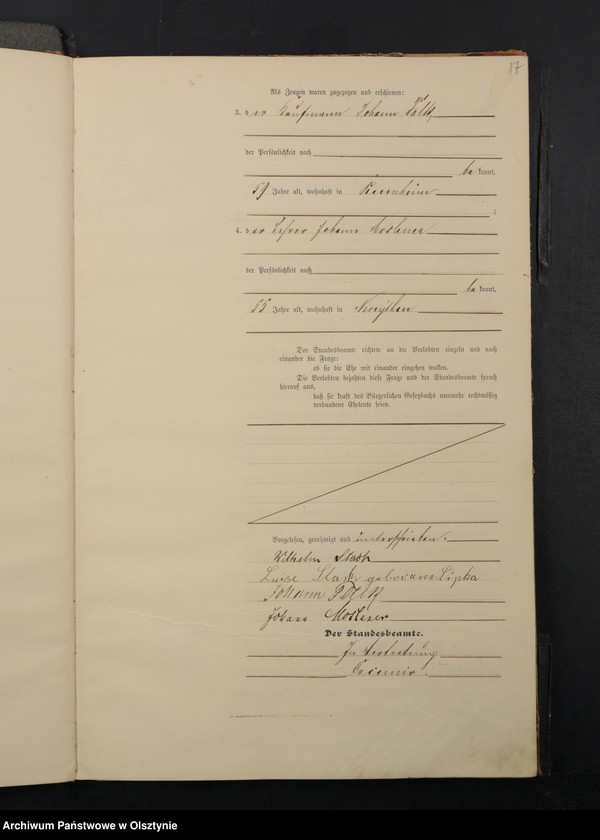 17
Als Zeugen waren zugezogen und erschienen:
3. der Kaufmann Johann
der Persönlichkeit nach
bekannt,
59 Jahre alt, wohnhaft in
;
4. der Lehrer Johann
der Persönlichkeit nach
bekannt,
55 Jahre alt, wohnhaft in
Der Standesbeamte richtete an die Verlobten einzeln und nach
einander die Frage:
ob sie die Ehe mit einander eingehen wollen.
Die Verlobten bejahten diese Frage und der Standesbeamte sprach
hierauf aus,
daß sie kraft des Bürgerlichen Gesetzbuchs nunmehr rechtmäßig
verbundene Eheleute seien.
Vorgelesen, genehmigt und unterschrieben.
Wilhelm
Luise geborene Lipka
Johann
Johann
Der Standesbeamte.
In Vertretung
Casimir.
Archiwum Państwowe w Olsztynie